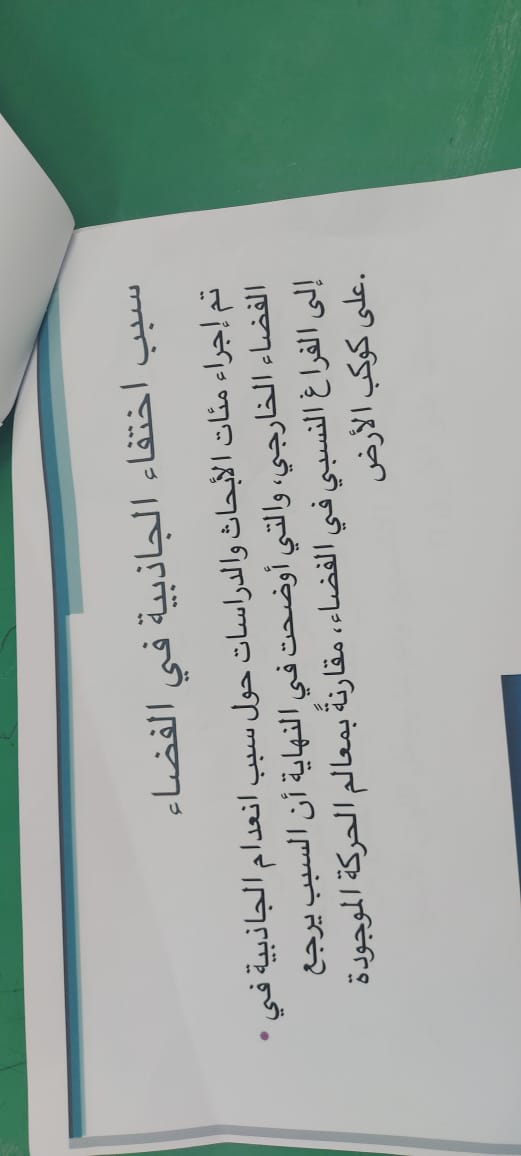 سبب اختفاء الجاذبية في الفضاء
• تم إجراء مئات الأبحاث والدراسات حول سبب انعدام الجاذبية في
الفضاء الخارجي، والتي أوضحت في النهاية أن السبب يرجع
إلى الفراغ النسبي في الفضاء، مقارنةً بمعالم الحركة الموجودة
.على كوكب الأرض